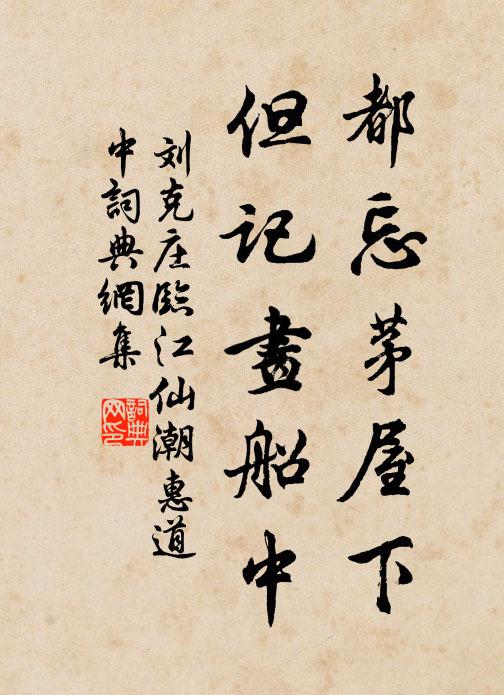 都忘茅屋下
但记畫船中
刘克庄臨江仙潮惠道
中詞典網集
詞典
网印